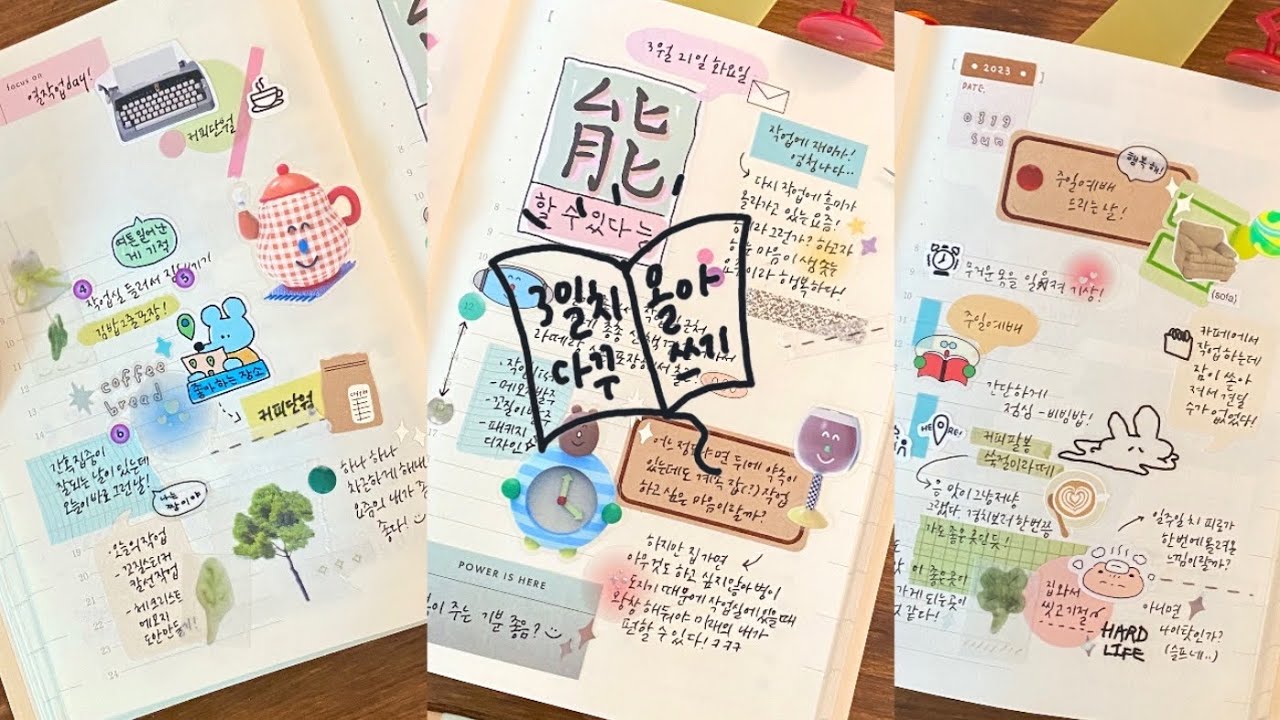 focus on
열작업day!
커피단월
여튼일어난
게 기적
4
5
작업실 들러서 짐챙기기
김밥2줄 포장!
좋아하는 장소
coffee
bread
커피단원
6
간호집중이
잘되는 날이 있는데
오늘이 바로 그런 날!
나는 짱이야
하나 하나
차근하게 해내는
요즘의 내가 좋
좋다!
·오늘의작업
- 꼬질스티커
칼선작업
- 체크리스트
메모지
도안만들기!
3월 21일 화요일
能
할 수 있다 능
작업에 재미가!
엄청나다..
다시 작업에 흥미가
올라가고 있는 요즘!
하는 마음이 샘솟는
요즘이라 행복하다!
3일치
다꾸
몰아
쓰기
12
17
- 메모 발주
- 패키지
디자인
어느정도냐면 뒤에 약속이
있는데도 계속 잡(?)작업
하고 싶은 마음이랄까?
POWER IS HERE
이 주는 기분 좋음?
하지만 집 가면
아무것도 하고 싶지않아병이
도지기 때문에 작업실에 있을때
왕창 해둬야 미래의 내가
편할 수 있다! ㅋㅋㅋ
2023
DATE.
0319
SUN
행복해!
주일예배
드리는 날!
무거운 몸을 일으켜 기상!
(sofa)
주일예배
카페에서
작업하는데
잠이 쏟아
져서 견딜
수가 없었다!
간단하게
점심 - 비빔밥!
HERE!
커피팔봉
쑥절미라떼
음 맛이 그냥저냥
그랬다 경치보러 한번쯤
가도 좋은 곳인듯!
더 좋은 곳이
가게 되는 곳이
것 같다!
일주일치 피로가
한번에 몰려온
느낌이랄까?
집와서
씻고 기절
HARD
LIFE
아니면
나이탓인가?
(슬프네..)